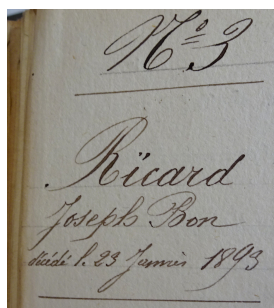 N° 3
Ricard
Joseph Bon
décédé l. 23 Janvier 1893